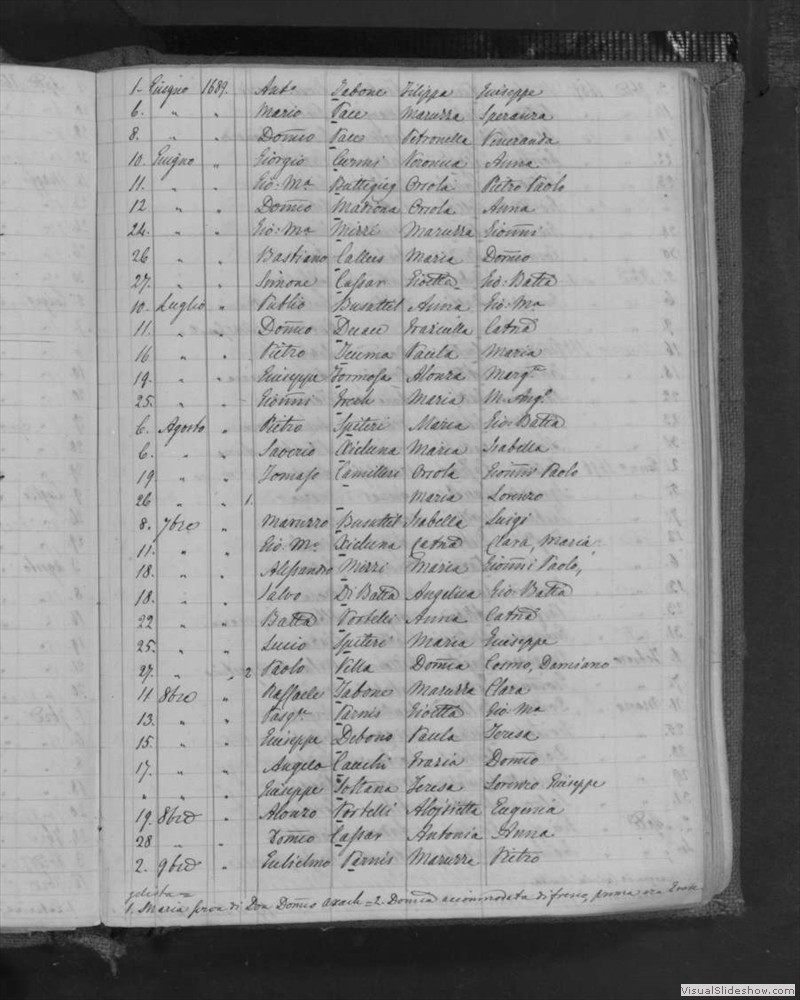 1. Giugno 1689. Ant.o Tabone Filippa Giuseppe
6. " " Mario Pace Maruzza Speranza
8. " " Dom̃co Pace Petronella Veneranda
10. Giugno " Giorgio Curmi Veronica Anna
11. " " Gio: M.a Buttigieg Orsola Pietro Paolo
12 " " Dom̃co Madiona Orsola Anna
24. " " Gio: M.a Mizzi Maruzza Gioñni
26 " " Bastiano Calleus Maria Dom̃co
27. " " Simone Cassar Gioetta Gio: Batta
10. Luglio " Publio Busuttil Anna Gio: M.a
11. " " Dom̃co Graziulla Catña
16 " " Pietro Paula Maria
19. " " Giuseppe Formosa Alonza Marg.a
25. " " Gioñni Maria M. Ang.o
6. Agosto " Pietro Spiteri Maria Gio: Batta
6. " " Saverio Xicluna Maria Isabella
19 " " Tomaso Camilleri Orsola Gioñni Paolo
26 " " 1. Maria Lorenzo
8. 7bre " Maruzzo Busuttil Isabella Luigi
11. " " Gio: M.a Xicluna Catña Clara, Maria
18. " " Alessandro Mizzi Maria Gioñni Paolo,
18. " " Salvo Di Batta Angelica Gio: Batta
22 " " Batta Portelli Anna Catña
25. " " Lucio Spiteri Maria Giuseppe
27. " " 2 Paolo Villa Dom̃ca Cosmo, Damiano
11. 8bre " Raffaele Tabone Maruzza Clara
13. " " Pasq.le Parnis Gioetta Gio: M.a
15. " " Giuseppe Debono Paula Teresa
17. " " Angelo Cauchi Grazia Dom̃co
" " " Giuseppe Soltana Teresa Lorenzo Giuseppe
19. 8bre " Alonzo Portelli Aloisietta Eugenia
28. " " Dom̃co Cassar Antonia Anna
2. 9bre " Gulielmo Parnis Maruzza Pietro
1. Maria serva di Don Dom̃co Axach = 2. Dom̃ca accommodata di fresco, prima era
VisualSlideshow.com